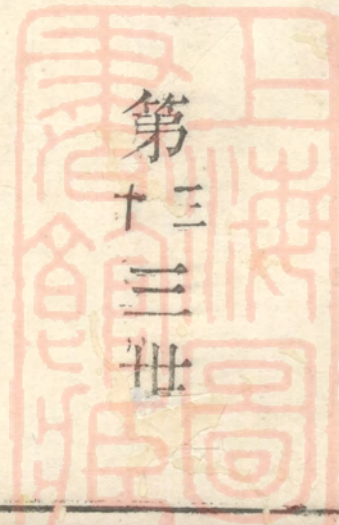 第三十三世
上海圖
書館藏